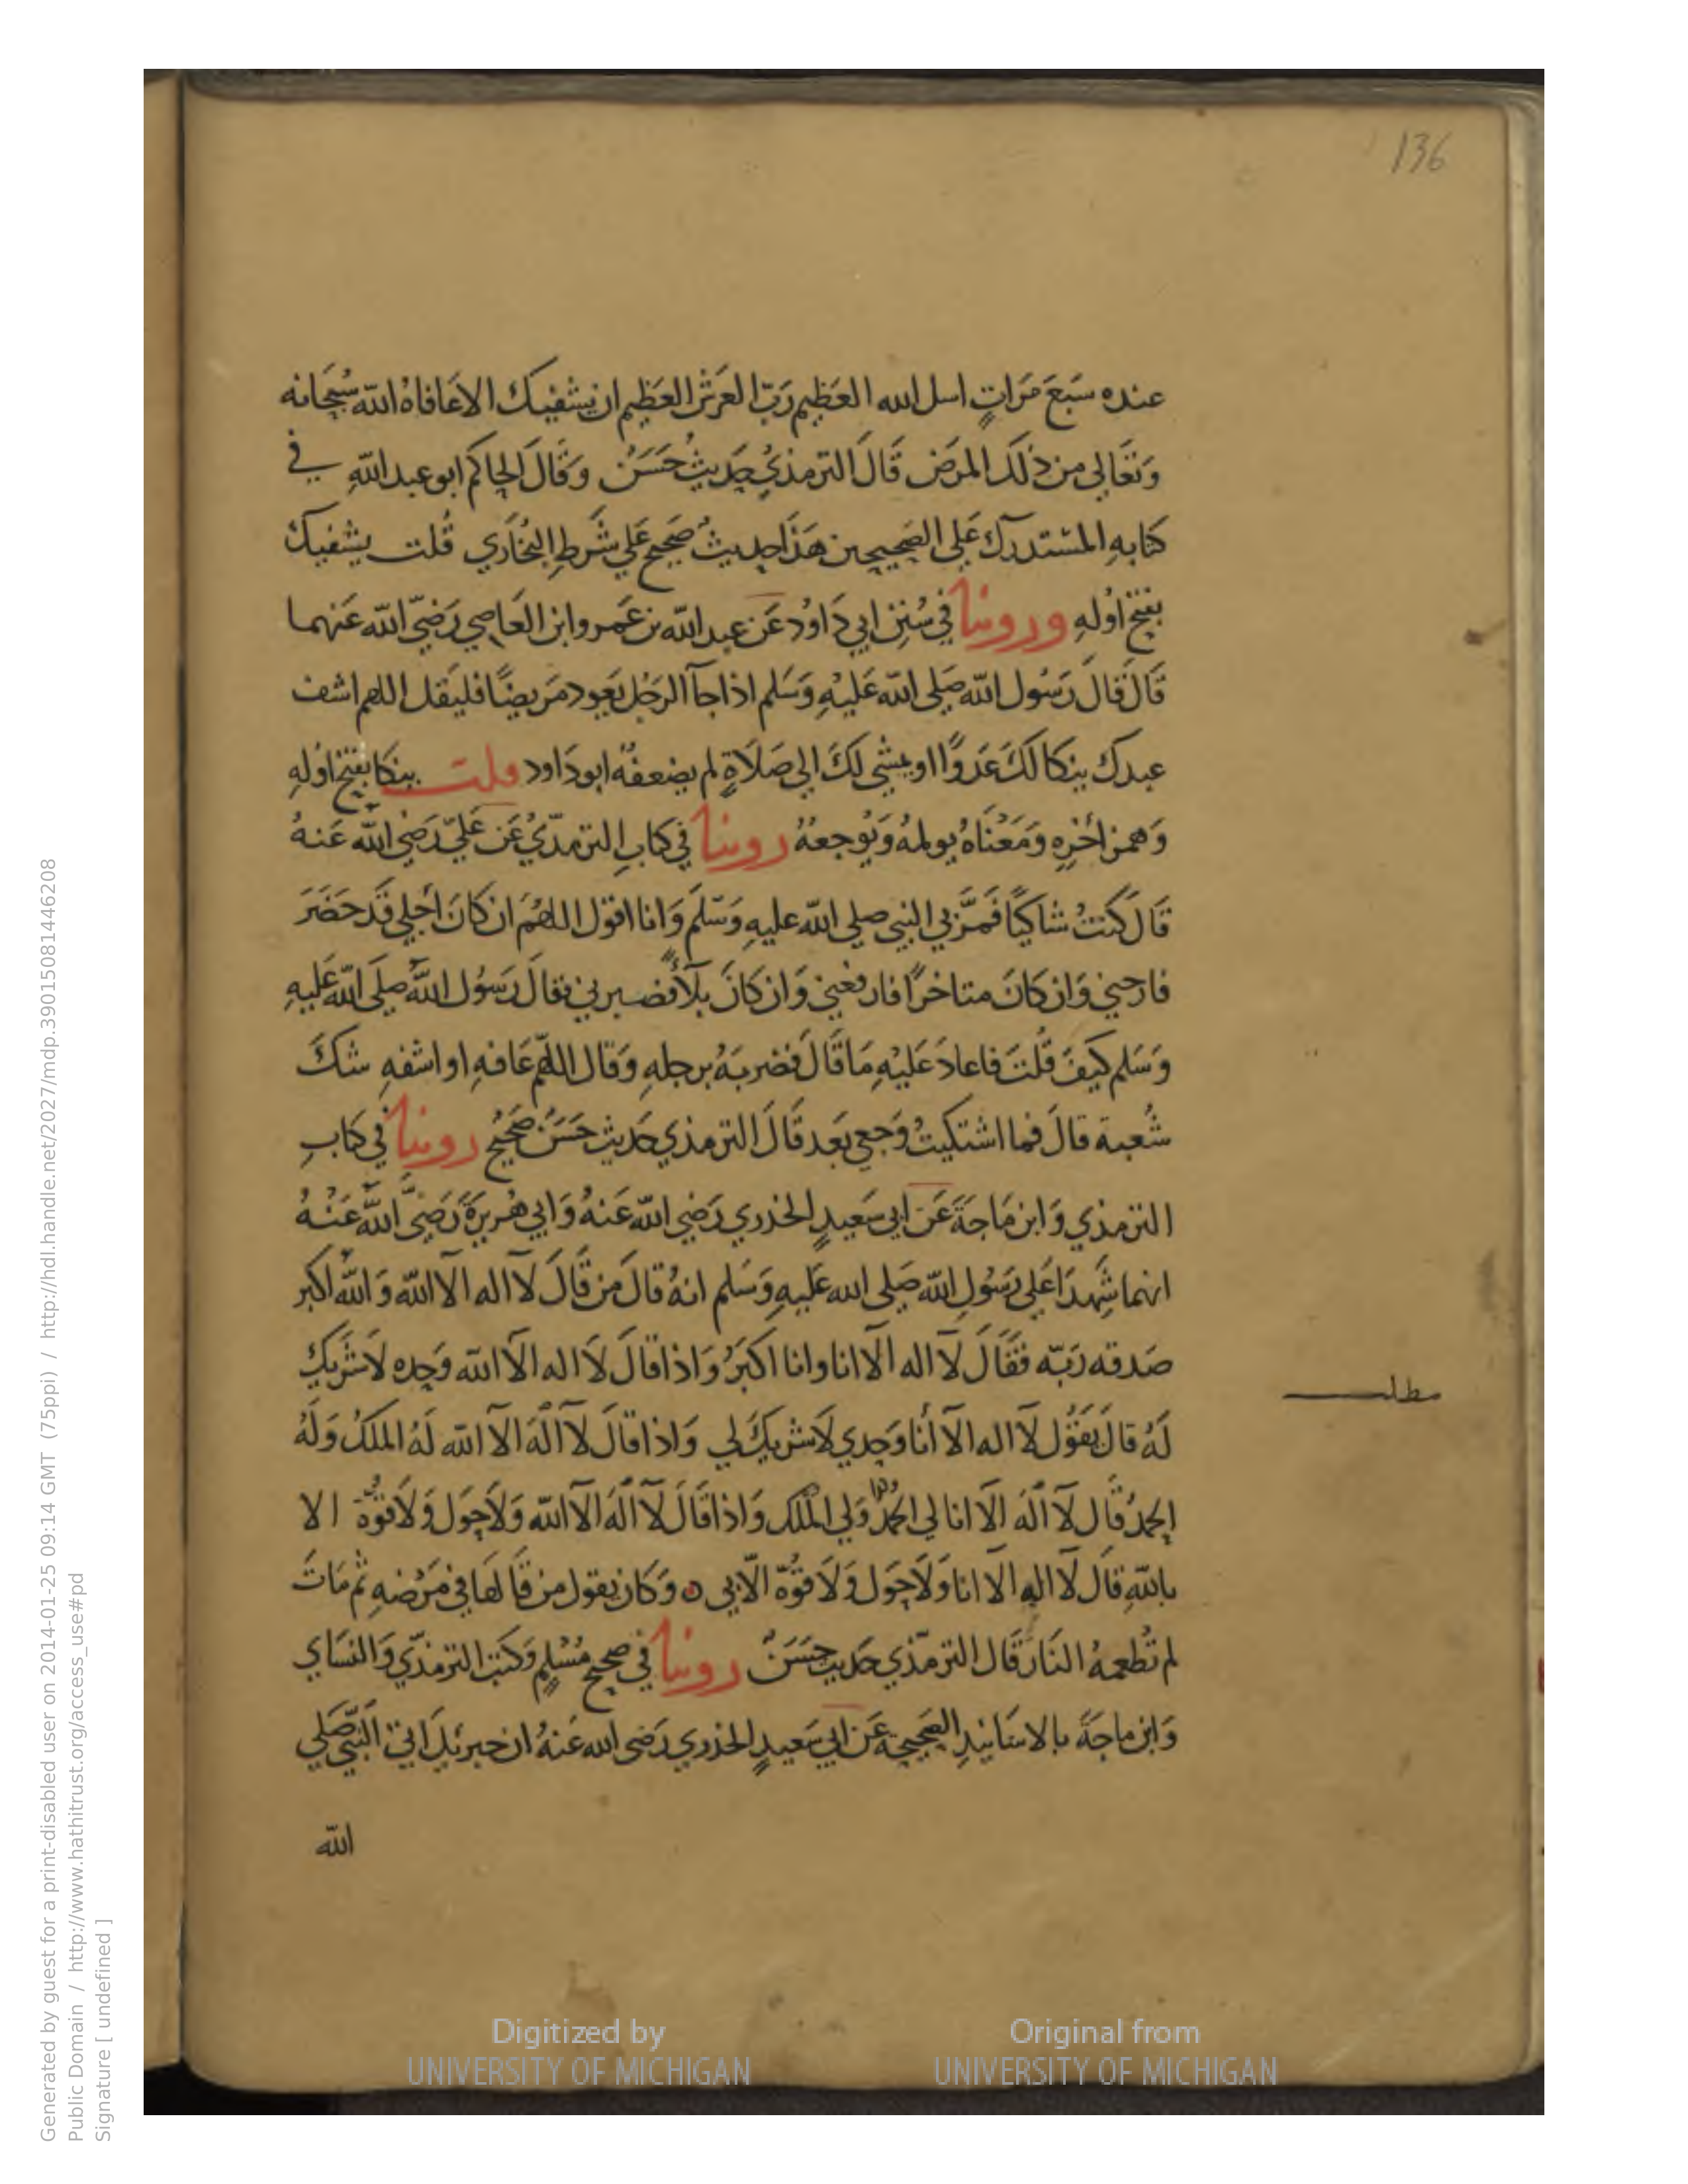 136
عنده سَبعَ مَرَاتٍ اسل الله العَظيم رَبّ العَرش العَظيم ان يشفيك الا عَافاهُ الله سُبحَانه
وَتعَالى من ذلك المرَض قَالَ الترمذيُ حَديثُ حَسَنُ وَقَالَ الحاكم ابو عبد اللهِ في
كتابهِ المستدرك عَلى الصَحيحين هَذَا حديثُ صَحيح عَلي شَرطِ البُخاري قُلت يشفيك
بفتح اوُلهِ وروينا في سُنَنِ ابي دَاوُد عَن عبد الله بن عَمرو ابن العَاصي رَضيَ الله عَنهما
قَالَ قَالَ رَسُول الله صَلى الله عَليْهِ وَسَلم اذا جآ الرَجُل يَعود مَريضًا فليَقل اللهم اشف
عبدك ينكا لكَ عَدوًا او يمشي لكَ الي صَلاَةٍ لم يضعفهُ ابو دَاود قلت ينكا بفتح اوُلهِ
وَهمز اخْرِه وَمَعْنَاهُ يولمهُ وَيُوجعهُ روينا في كتابِ الترمذيُ عَن عَليّ رَضي الله عَنهُ
قَالَ كنتُ شاكيًا فَمَرَّ بي النبي صلي الله عليهِ وَسَلمَ وَانا اقول اللهُمَ ان كانَ اجلي قَد حَضَرَ
فارحني وَان كانَ متاخرًا فارفعني وَان كانَ بلاًَء فصبرني فقالَ رَسُول اللهُ صلَى الله عَليهِ
وَسَلم كيَفَ قُلتَ فاعادَ عَليْهِ مَا قَالَ فضربَهُ برجلهِ وَقال اللهُم عَافهِ او اشفهِ شكَ
شُعبة قالَ فما اشتكيتُ وَجعي بَعد قَالَ الترمذي حَديث حَسَنُ صَحيحُ روينا في كتابِ
الترمذي وَابن مَاجَةَ عَن ابي سَعيدٍ الخدري رَضي الله عَنهُ وَابي هُريرَةَ رَضيَ الله عَنْهُ
انهما شَهِدَا عَلى رَسُولِ الله صَلى الله عَليهِ وَسَلم انهُ قالَ من قَالَ لآ اله الآ الله وَاللهُ اكبر
صَدقه رَبّه فقَالَ لآ اله الآ انا وانا اكبَرُ وَاذا قالَ لاَ اله الآ الله وَحده لاَ شَريك
لَهُ قالَ يَقُول لآ اله الآ أنا وَحدي لاَ شريكَ لي وَاذا قالَ لآ الهَ الآ الله لَهُ الملكُ وَلَهُ
الحمدُ قَال لآ الهَ الآ انا لي الحمدُ وَلي المُلك وَاذا قَالَ لآ الهَ الآ الله وَلاَ حَول وَلاَ قوُّة الا
بالله قَالَ لاَ اله الآ انا وَلاَ حَول وَلاَ قوُّة الاّ بي ه وَكان يقول من قَالهَا في مَرَضهِ ثم مَاتَ
لم تُطعمهُ النَار قَالَ الترمذي حَديث حَسَنٌ روينا في صحيح مُسْلمٍ وَكتب الترمذي وَالنسَاي
وَابن ماجَةَ بالاسَانيدِ الصَحيحةِ عَن ابي سَعيدٍ الخدري رَضي الله عَنهُ ان جبرئيل اتي النَبيَ صَلي
الله
مطلب
Digitized by
UNIVERSITY OF MICHIGAN
Original from
UNIVERSITY OF MICHIGAN
Generated by guest for a print-disabled user on 2014-01-25 09:14 GMT (75ppi) / http://hdl.handle.net/2027/mdp.39015081446208
Public Domain / http://www.hathitrust.org/access_use#pd
Signature [ undefined ]